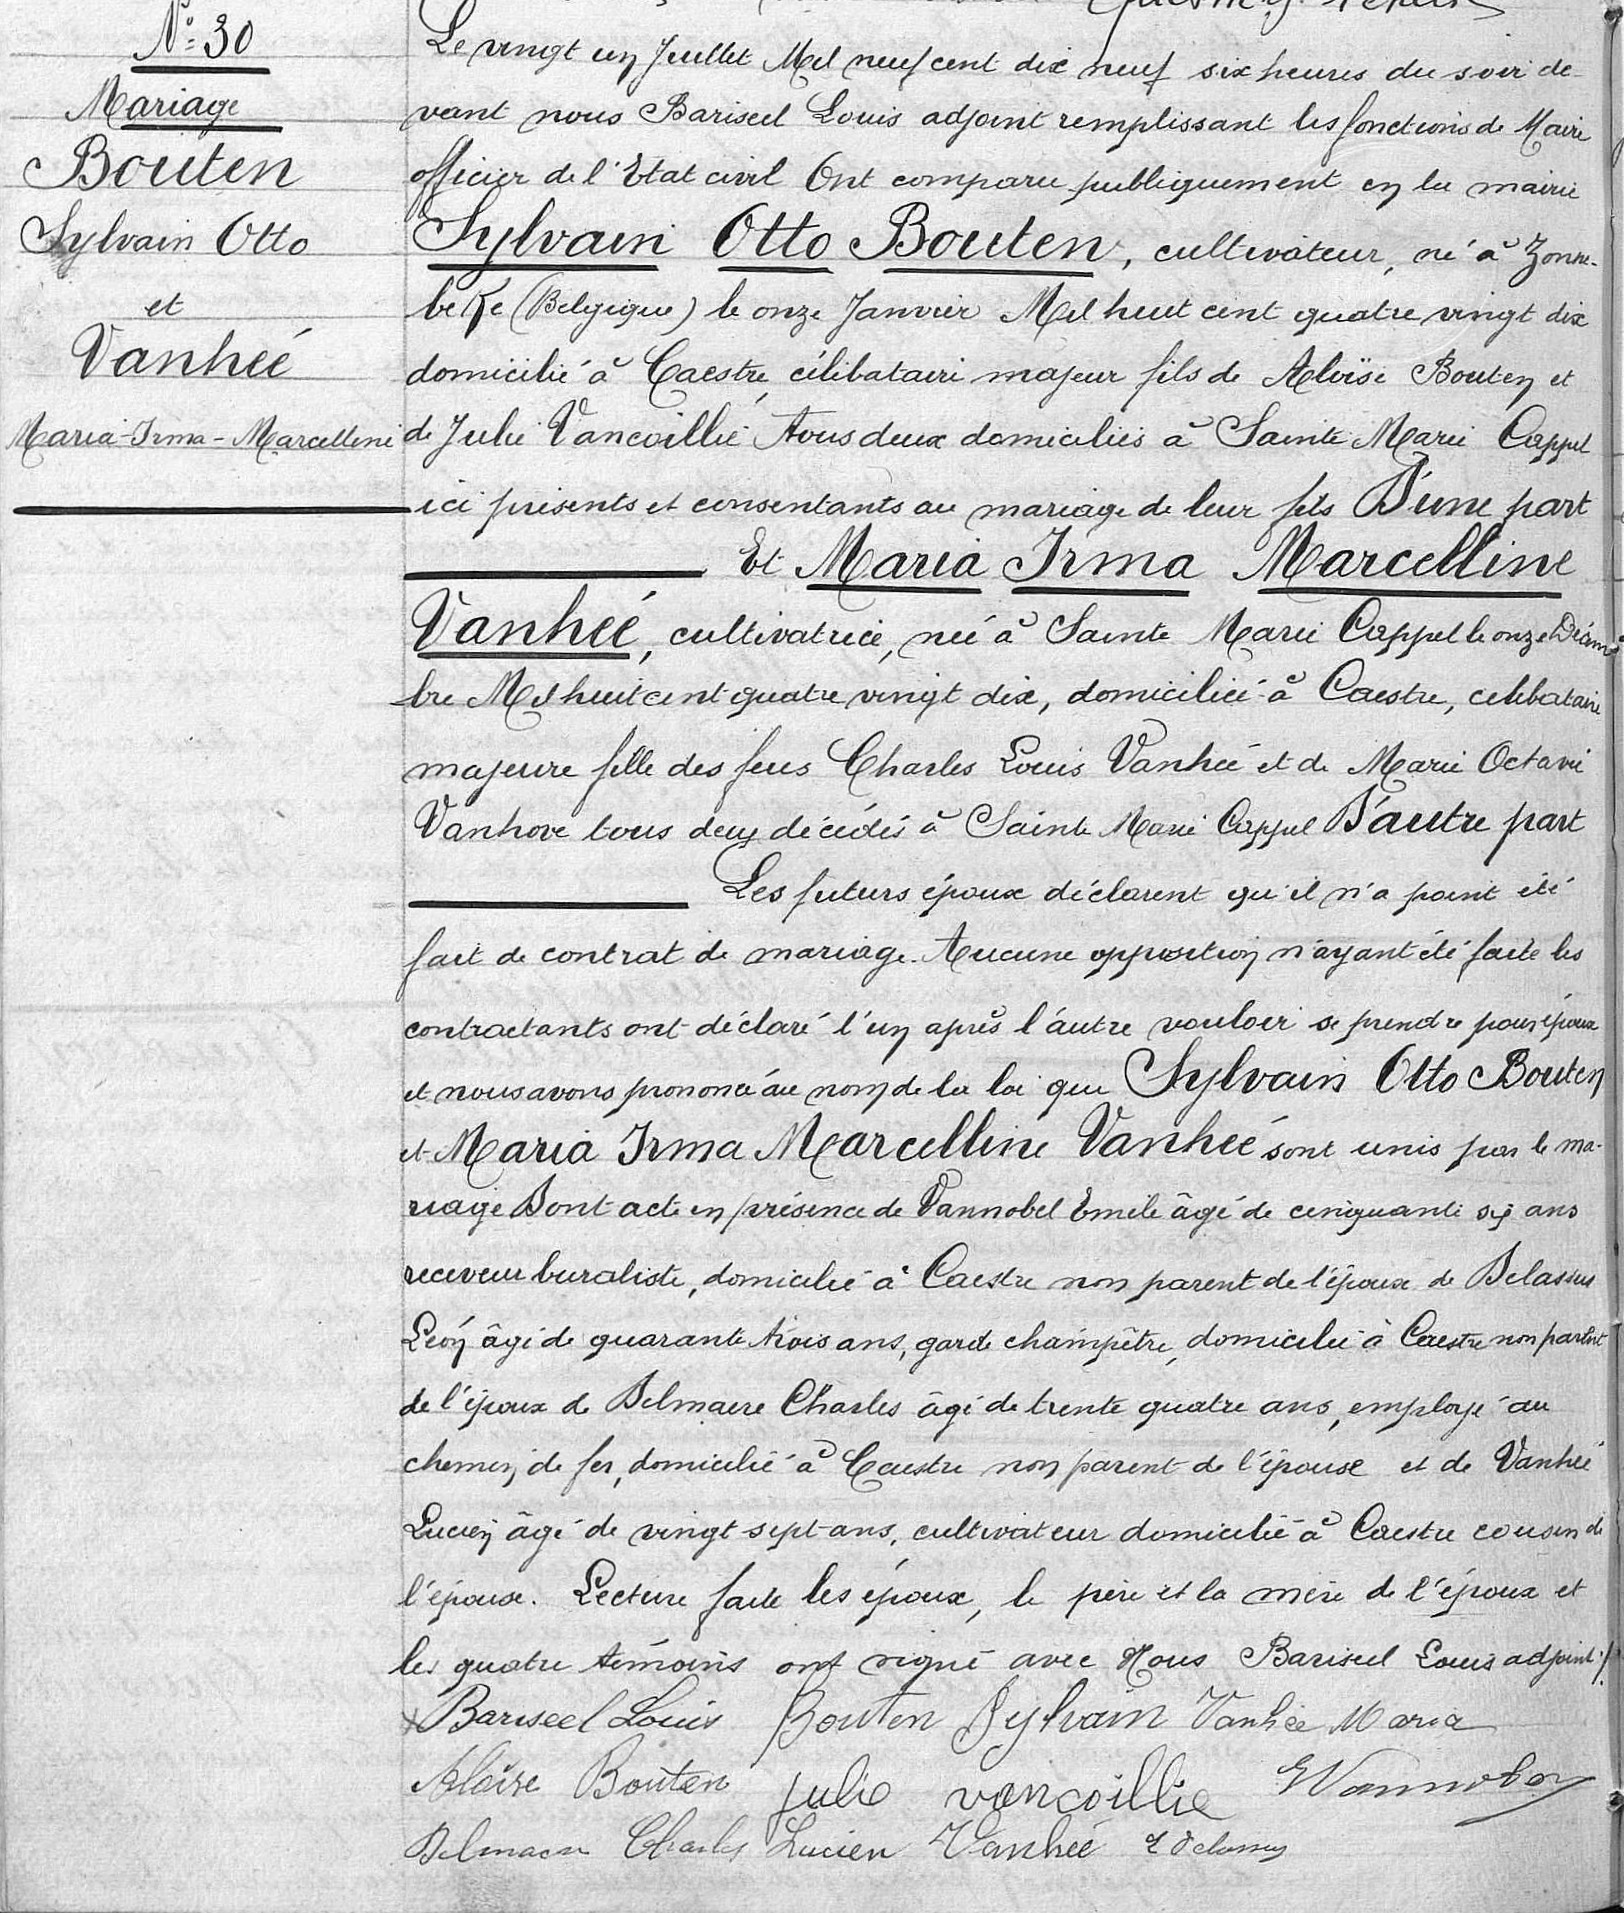 N° 30
Mariage
Bouten
Sylvain Otto
et
Vanheé
Maria-Irma-Marcelline
Le vingt un Juillet Mil neuf cent dix neuf six heures du soir de-
vant nous Bariseel Louis adjoint remplissant les fonctions de Maire
officier de l'Etat civil Ont comparu publiquement en la mairie
Sylvain Otto Bouten, cultivateur, né à Zonne-
beke (Belgique) le onze Janvier Mil huit cent quatre vingt dix
domicilié à Caestre, célibataire majeur fils de Aloïse Bouten et
de Julie Vancoillié tous deux domiciliés à Sainte Marie Cappel
ici présents et consentants au mariage de leur fils D'une part
Et Maria Irma Marcelline
Vanheé, cultivatrice, née à Sainte Marie Cappel le onze Décem-
bre Mil huit cent quatre vingt dix, domiciliée à Caestre, celibataire
majeure fille des feus Charles Louis Vanheé et de Marie Octavie
Vanhove tous deux décédés à Sainte Marie Cappel D'autre part
Les futurs époux déclarent qu'il n'a point été
fait de contrat de mariage. Aucune opposition n'ayant été faite les
contractants ont déclaré l'un après l'autre vouloir se prendre pour époux
et nous avons prononcé au nom de la loi que Sylvain Otto Bouten
et Maria Irma Marcelline Vanheé sont unis par le ma-
riage Dont acte en présence de Vannobel Emile âgé de cinquante six ans
receveur buraliste, domicilié à Caestre non parent de l'époux de Delassus
Léon âgé de quarante trois ans, garde champêtre, domicilié à Caestre non parent
de l'époux de Delmaere Charles âgé de trente quatre ans, employé au
chemin de fer, domicilié à Caestre non parent de l'épouse et de Vanheé
Lucien âgé de vingt sept ans, cultivateur domicilié à Caestre cousin de
l'épouse. Lecture faite les époux, le père et la mère de l'époux et
les quatre témoins ont signé avec Nous Bariseel Louis adjoint ./.
Bariseel Louis Bouten Sylvain Vanheé Maria
Aloïse Bouten Julie vancoillie E Vannobel
Delmaere Charles Lucien Vanheé L Delassus